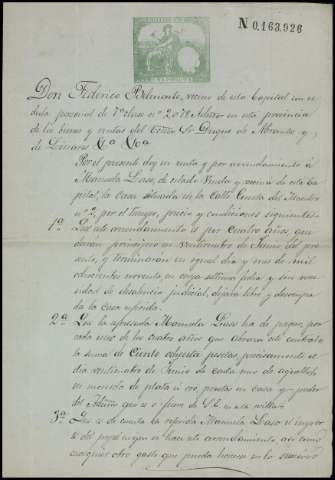 N 0.163.926
Don Federico Belmonte, vecino de esta Capital con ce-
dula personal de 7ª clase nº 2078 Admor en esta provincia
de los bienes y rentas del Sr Duque de Abrantes y
de Linares &ª &ª
Por el presente doy en renta y por arrendamiento á
Manuela Laso, de estado Viuda y vecina de esta Ca-
pital, la casa situada en la calle Cuesta del
nº 2, por el tiempo, precio y condiciones siguientes
1ª Que este arrendamiento es por cuatro años que
darán principio en veinticuatro de Junio del pre-
sente, y terminarán en igual dia y mes de mil
ochocientos noventa, en cuya última fecha y sin ne-
cesidad de desahucio judicial, dejará libre y desocupa-
da la casa referida.
2ª Que la expresada Manuela Laso ha de pagar, por
cada uno de los cuatro años que abraza este contrato
la suma de Ciento ochenta pesetas precisamente el
dia veinticuatro de Junio de cada uno de aquellos
en moneda de plata ú oro puestas en casa y poder
del Admor que es ó fuere de S.E. en esta
3ª Que es de cuenta la referida Manuela Laso el impor-
te del papel en que se hace este arrendamiento, asi como
cualquier otro gasto que pueda hacerse en lo sucesivo